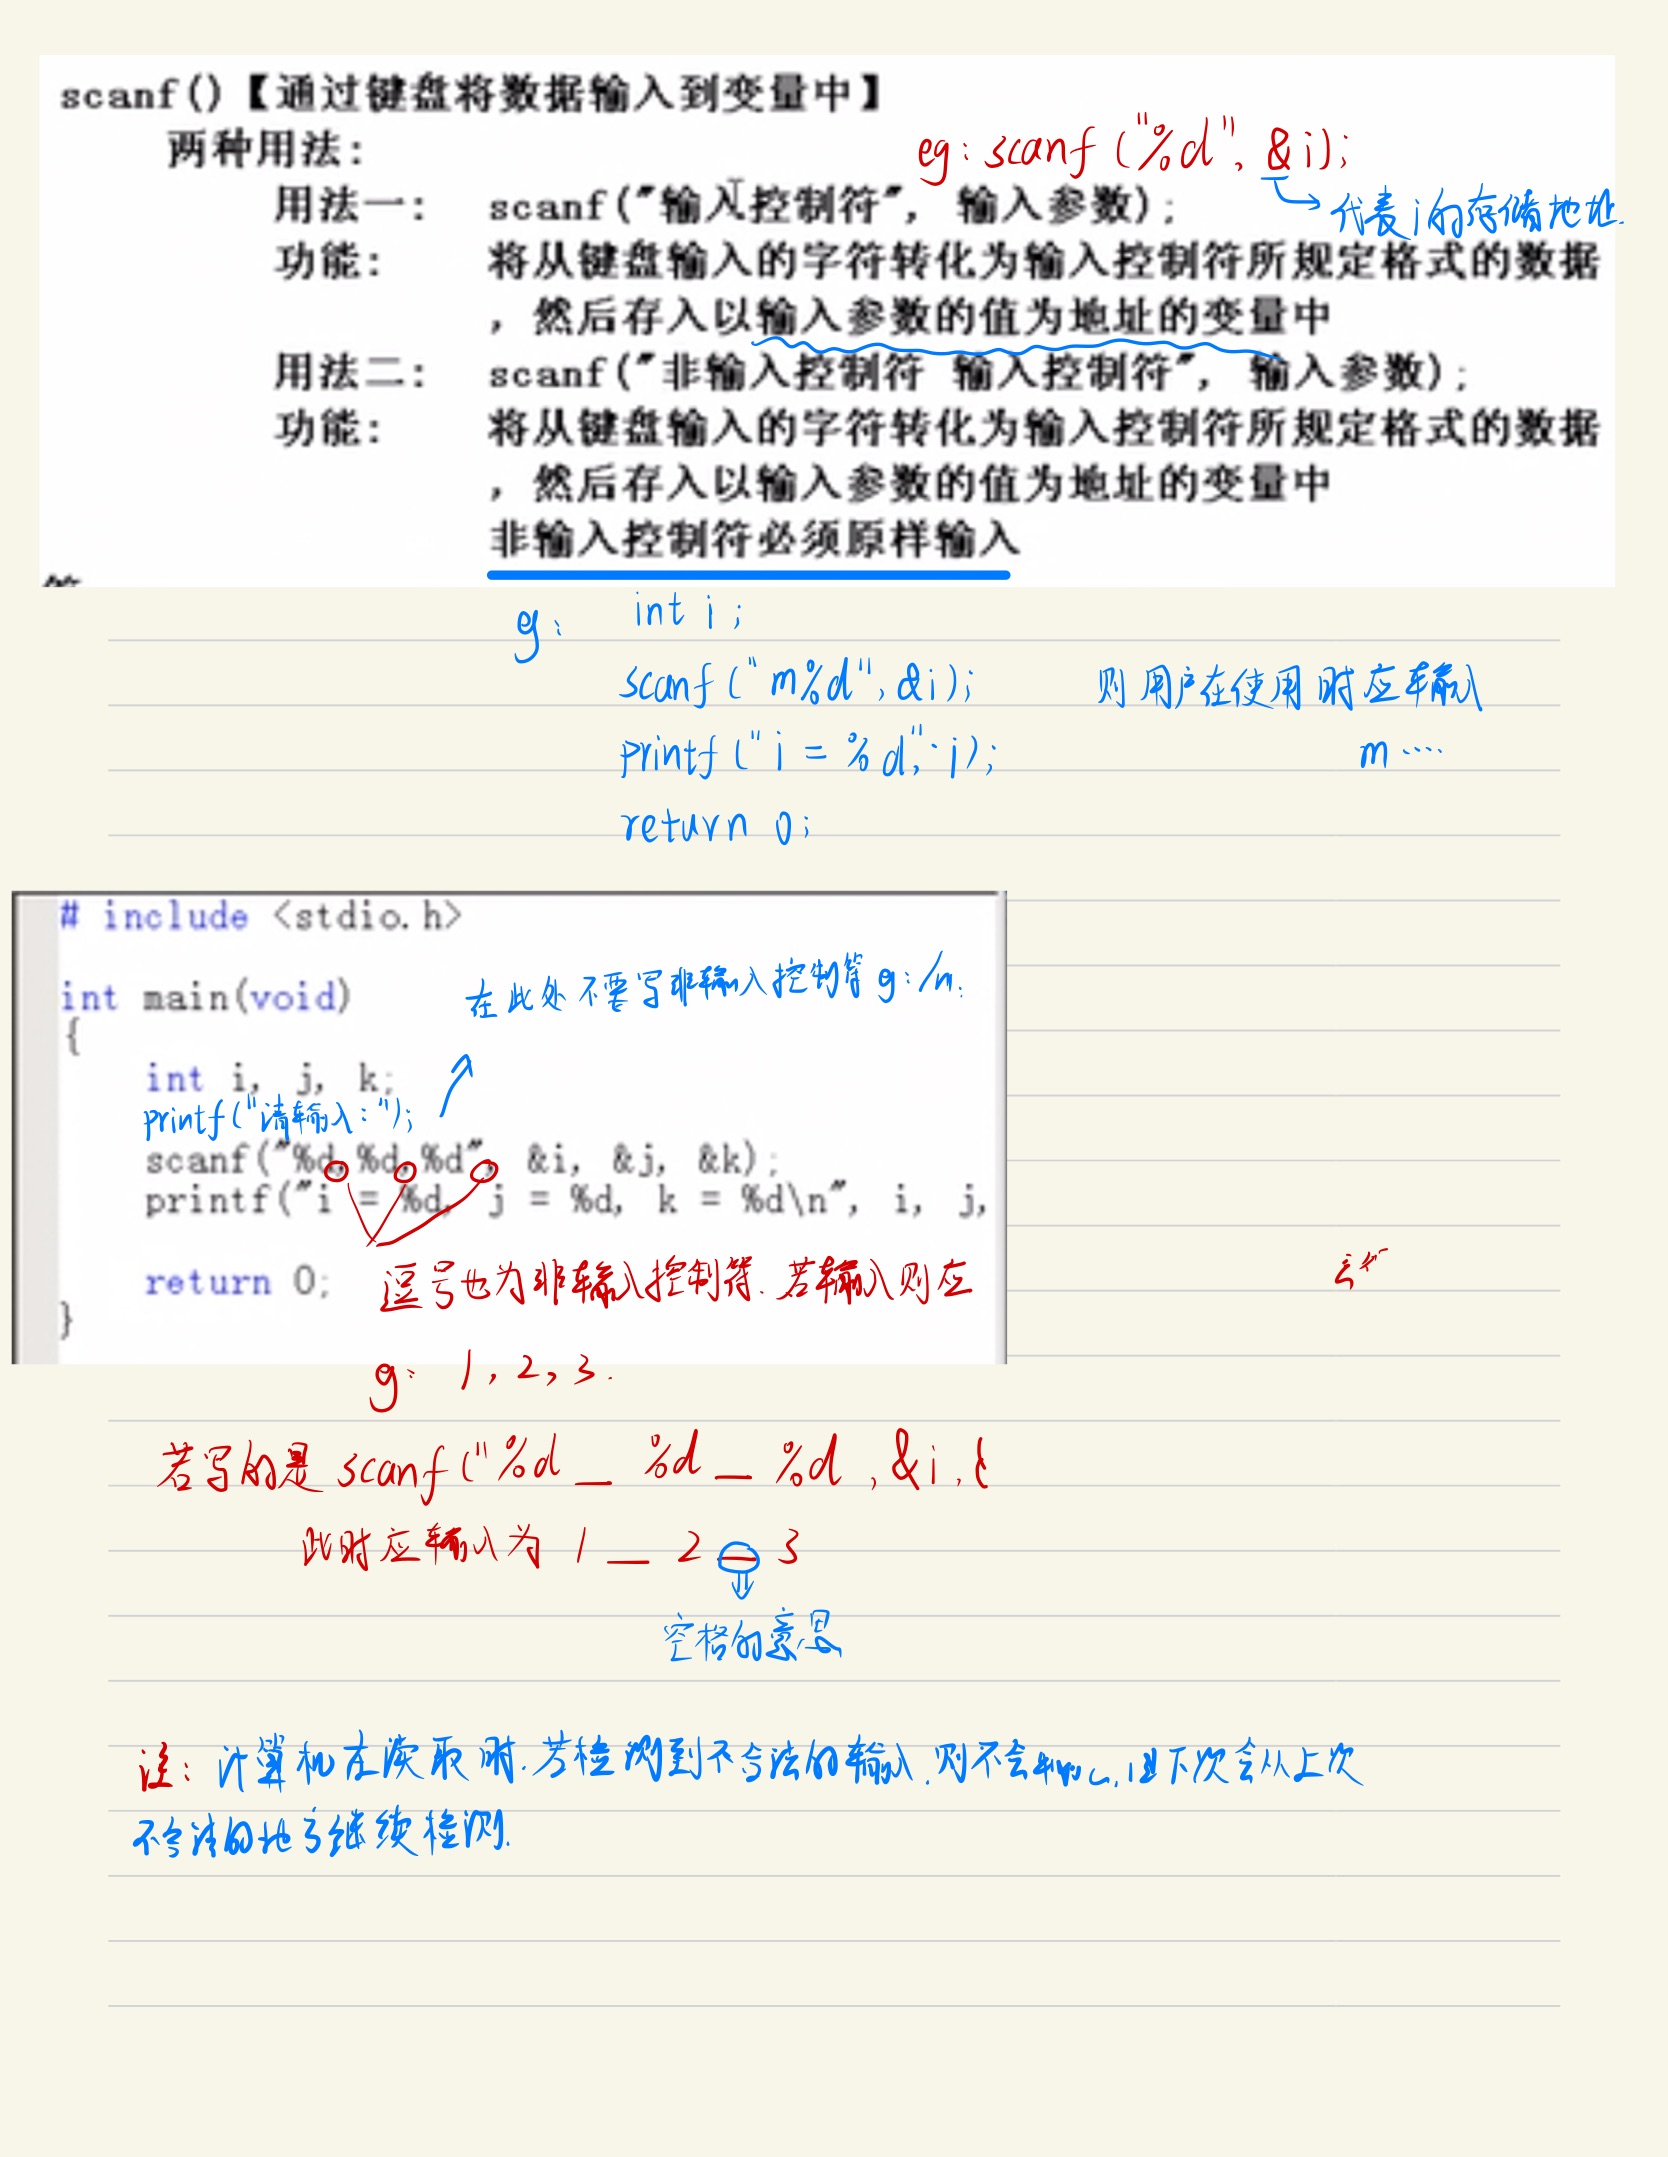 scanf()【通过键盘将数据输入到变量中】
两种用法:
eg: scanf ("%d", &i);
用法一: scanf("输入控制符", 输入参数);
代表i的存储地址.
功能: 将从键盘输入的字符转化为输入控制符所规定格式的数据
, 然后存入以输入参数的值为地址的变量中
用法二: scanf("非输入控制符 输入控制符", 输入参数);
功能: 将从键盘输入的字符转化为输入控制符所规定格式的数据
, 然后存入以输入参数的值为地址的变量中
非输入控制符必须原样输入
eg: int i;
scanf ("m%d", &i); 则用户在使用时应输入
printf ("i = %d", i); m ....
return 0;
# include <stdio.h>
int main(void)
在此处不要写非输入控制符 eg: /n.
{
int i, j, k;
printf("请输入:");
scanf("%d,%d,%d", &i, &j, &k);
printf("i = %d, j = %d, k = %d\n", i, j,
return 0;
逗号也为非输入控制符. 若输入则应
}
eg: 1, 2, 3.
若写的是 scanf ("%d _ %d _ %d , &i, &
此时应输入为 1 _ 2 _ 3
空格的意思
注: 计算机在读取时. 若检测到不合法的输入. 则不会 且下次会从上次
不合法的地方继续检测.